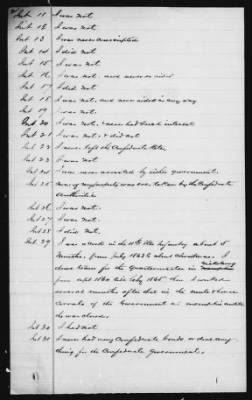 Int. 11 I was not.
Int. 12 I was not.
Int. 13 I was never conscripted
Int. 14 I did not
Int. 15 I was not.
Int. 16 I was not. and never so aided
Int. 17 I did not.
Int. 18 I was not. and never aided in any way
Int. 19 I was not.
Int. 20 I was not. & never had such interest
Int. 21 I was not. & did not
Int. 22 I never left the Confederate States
Int. 23 I was not
Int. 24 I was never arrested by either government.
Int. 25 None of my property was ever taken by the Confederate
authorities
Int. 26 I was not.
Int. 27 I was not.
Int. 28 I did not.
Int. 29 I was a clerk in the 11th Ills Infantry about 5
months, from July 1863 to about
for the Quartermaster in
from Sept 1864 till July 1865. then I worked
several months after that in the mule & horse
Corrals of the Government at Memphis until
was closed.
Int. 30 I had not
Int. 31 I never had any Confederate bonds or done any
thing for the Confederate Government.